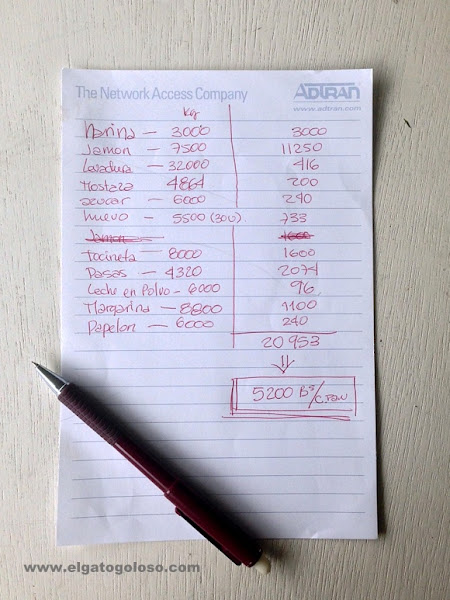 The Network Access Company ADTRAN
www.adtran.com
Kg
Harina — 3000 3000
Jamon — 7500 11250
Levadura — 32.000 416
Mostaza 4864 200
azucar — 6000 240
huevo — 5500 (30U) 733
Jamon 1600
Tocineta — 8000 1600
Pasas — 4320 2074
Leche en Polvo - 6000 96
Margarina — 8800 1100
Papelon — 6000 240
20953
⇓
5200 Bs/c.pan
www.elgatogoloso.com